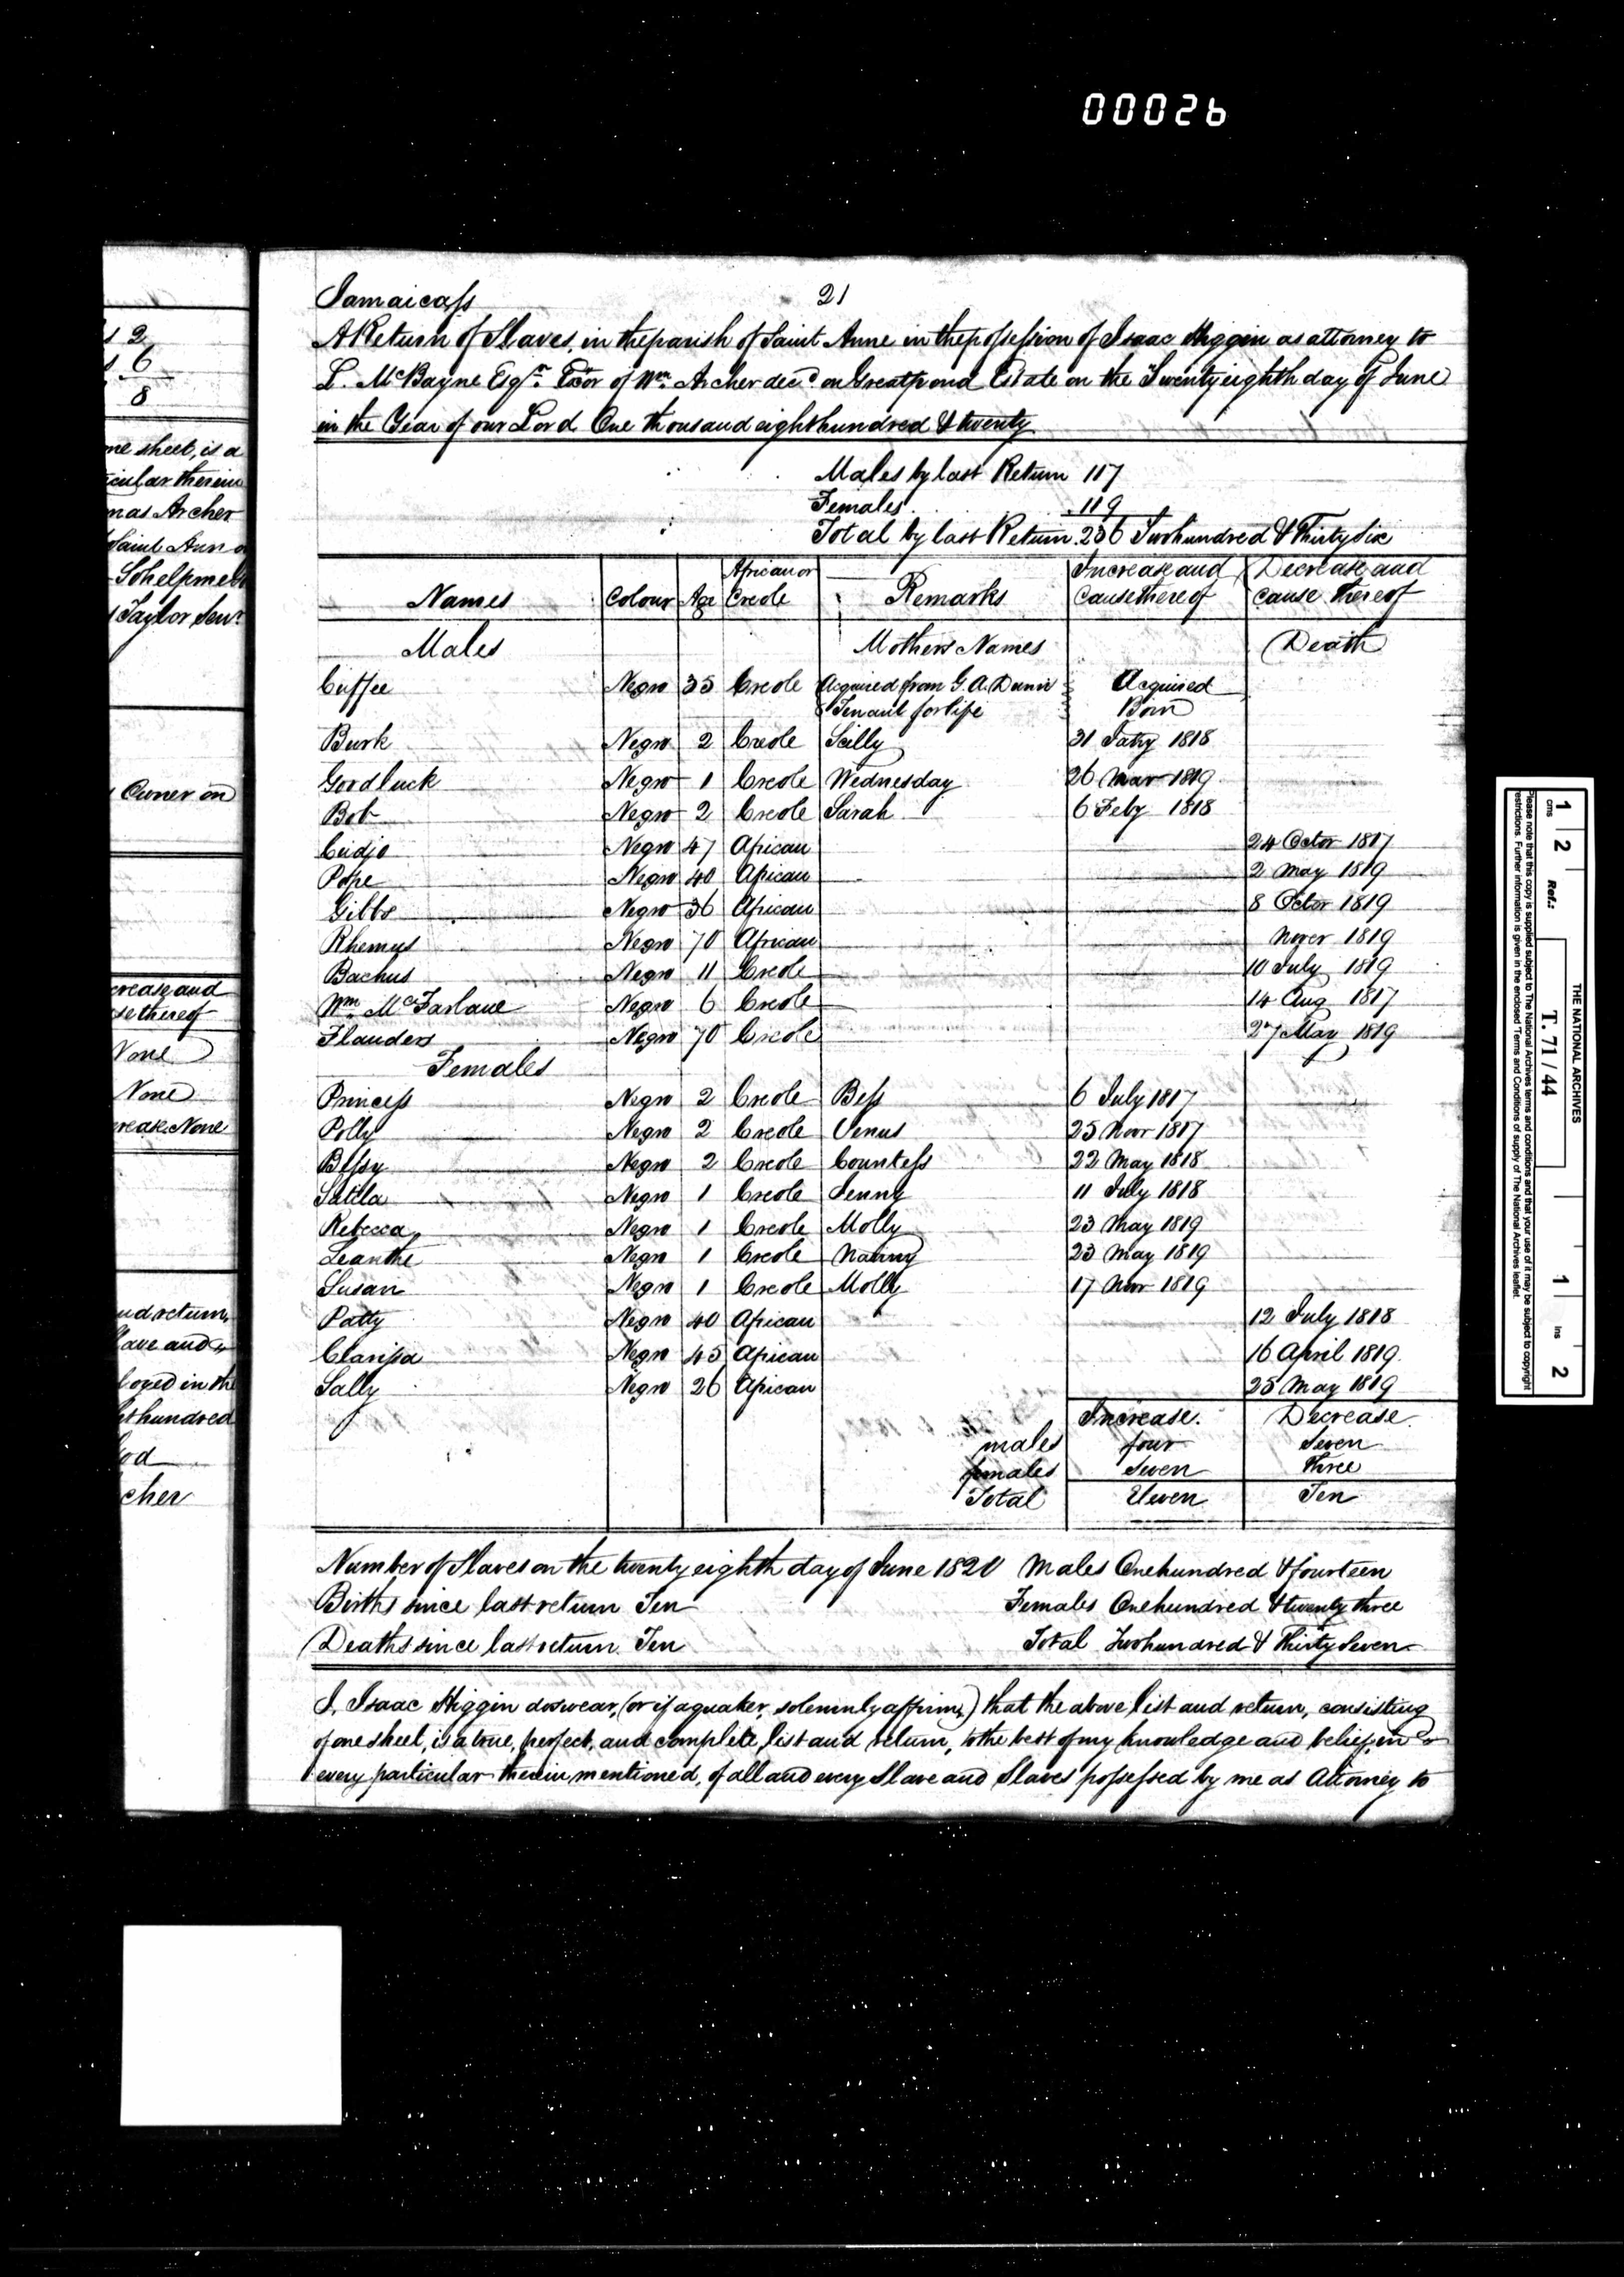 00026
s 2
s 6
8
me sheet, is a
icular therein
mas Archer
Saint Ann
Taylor Senr.
Owner on
crease and
se thereof
None
None
rease None
nd return,
lave and
loyed in the
ht hundred
od
cher
Jamaica ss
21
A Return of Slaves, in the parish of Saint Anne in the possession of Isaac Higgin as attorney to
L. McBayne Esqr. Exor of Wm. Archer decd. on Greatpond Estate on the Twenty eighth day of June
in the Year of our Lord One thousand eight hundred & twenty
Males by last Return 117
Females 119
Total by last Return 236 Two hundred & Thirty Six
Names Colour Age African or Creole Remarks Increase and Cause thereof Decrease and Cause thereof
Males Mothers Names Death
Cuffee Negro 35 Creole Acquired from G. A. Dunn Acquired
Tenant for life Born
Burk Negro 2 Creole Scilly 31 Jany 1818
Goodluck Negro 1 Creole Wednesday 26 Mar 1819
Bob Negro 2 Creole Sarah 6 Feby 1818
Cudjo Negro 47 African 24 Octor 1817
Pope Negro 40 African 2 May 1819
Gibbs Negro 36 African 8 Octor 1819
Rhemus Negro 70 African Nover 1819
Bachus Negro 11 Creole 10 July 1819
Wm. McFarlane Negro 6 Creole 14 Aug 1817
Flanders Negro 70 Creole 27 May 1819
Females
Princess Negro 2 Creole Bess 6 July 1817
Polly Negro 2 Creole Venus 25 Novr 1817
Bessy Negro 2 Creole Countess 22 May 1818
Satila Negro 1 Creole Jenny 11 July 1818
Rebecca Negro 1 Creole Molly 23 May 1819
Leanthe Negro 1 Creole Nanny 23 May 1819
Susan Negro 1 Creole Molly 17 Novr 1819
Patty Negro 40 African 12 July 1818
Clarissa Negro 45 African 16 April 1819
Sally Negro 26 African 25 May 1819
Increase. Decrease.
males four Seven
females Seven three
Total Eleven Ten
Number of Slaves on the twenty eighth day of June 1820 Males One hundred & fourteen
Births since last return Ten Females One hundred & twenty three
Deaths since last return Ten Total Two hundred & Thirty Seven
I, Isaac Higgin do swear, (or if a quaker, solemnly affirm,) that the above list and return, consisting
of one sheet, is a true, perfect, and complete, list and return, to the best of my knowledge and belief, in
every particular therein mentioned, of all and every Slave and Slaves possessed by me as Attorney to
1 2 1 2
cms Ref.: ins
THE NATIONAL ARCHIVES
T. 71 / 44
Please note that this copy is supplied subject to The National Archives terms and conditions and that your use of it may be subject to copyright
restrictions. Further information is given in the enclosed Terms and Conditions of supply of The National Archives leaflet.